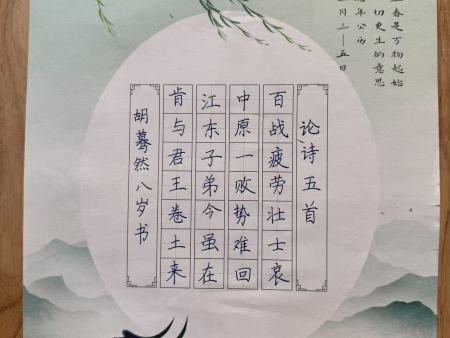 春是万物起始
切更生的意思
年公历
月三—五日
论诗五首
百战疲劳壮士哀
中原一败势难回
江东子弟今虽在
肯与君王卷土来
胡然八岁书